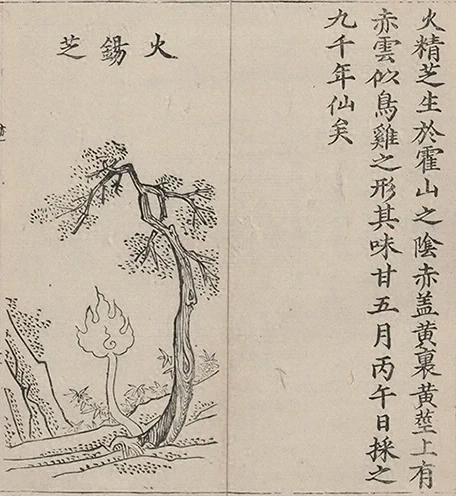 火精芝生於霍山之陰赤盖黄裏黄莖上有
赤雲似鳥雞之形其味甘五月丙午日採之
九千年仙矣
火錫芝